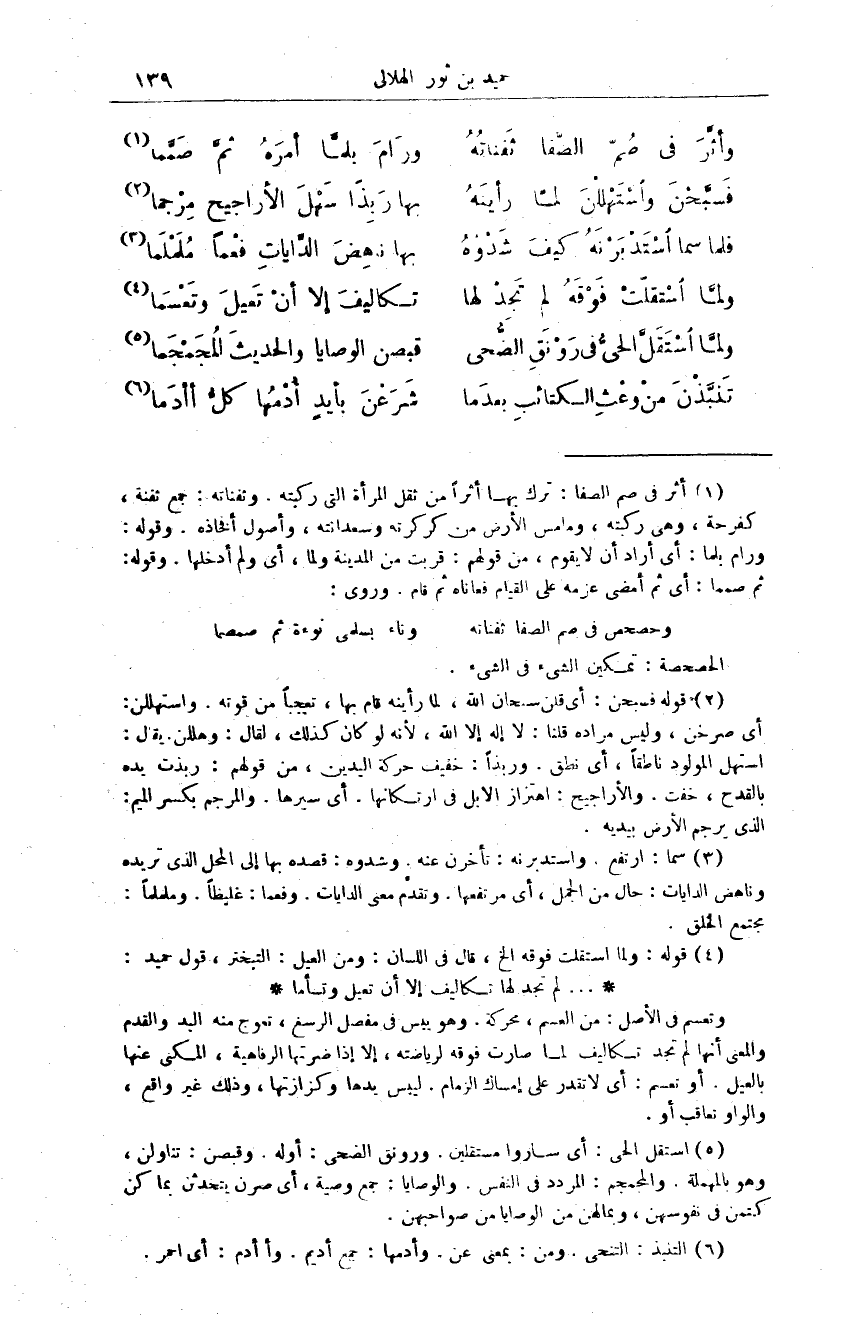 حميد بن ثور الهلالى ١٣٩
وأثَّرَ فى صُمّ الصَّفا ثَفَناتُهُ ورَامَ بلمَّا أمرَهُ ثُمَّ صَمَّما(١)
فَسَبَّحْنَ واُسْتَهْلَلْنَ لمَّا رأينَهُ بها رَبِذًا سَهْلَ الأراجيحِ مِرْجما(٢)
فلما سما اُسْتَدْبَرْنَهُ كيفَ شَدْوُهُ بها ناهِضَ الدَّاياتِ فَعْماً مُلَمْلَما(٣)
ولمَّا اُسْتقلَّتْ فَوْقَهُ لم تَجِدْ لها تكاليفَ إلا أنْ تَعيلَ وتَعْسَما(٤)
ولمَّا اُسْتَقَلَّ الحىُّ فى رَوْنَقِ الضُّحى قبصن الوصايا والحديثَ المُجَمْجَما(٥)
تَنَبَّذْنَ منْ وعْثِ الكتائبِ بعدَما شَرَعْنَ بأيدٍ أُدْمُها كلُّ أأدَما(٦)
(١) أثر فى صم الصفا : ترك بها أثراً من ثقل المرأة التى ركبته . وثفناته : جمع ثفنة ،
كفرحة ، وهى ركبته ، ومامس الأرض من كركرته وسعداناته ، وأصول أفخاذه . وقوله :
ورام بلما : أى أراد أن لايقوم ، من قولهم : قربت من المدينة ولما ، أى ولم أدخلها . وقوله:
ثم صمما : أى ثم أمضى عزمه على القيام فعاناه ثم قام . وروى :
وحصحص فى صم الصفا ثفناته وناء بسلمى نوءة ثم صمصما
الحصحصة : تمكين الشىء فى الشىء .
(٢) قوله فسبحن : أى قلن سبحان الله ، لما رأينه قام بها ، تعجباً من قوته . واستهللن:
أى صرخن ، وليس مراده قلنا : لا إله إلا الله ، لأنه لو كان كذلك ، لقال : وهللن . يقال :
استهل المولود ناطقاً ، أى نطق . وربذاً : خفيف حركة اليدين ، من قولهم : ربذت يده
بالقدح ، خفت . والأراجيح : اهتزاز الابل فى ارتكانها . أى سيرها . والمرجم بكسر الميم:
الذى يرجم الأرض بيديه .
(٣) سما : ارتفع . واستدبرنه : تأخرن عنه . وشدوه : قصده بها إلى المحل الذى تريده
وناهض الدايات : حال من الجمل ، أى مرتفعها . وتقدم معنى الدايات . وفعما : غليظاً . وململماً :
مجتمع الخلق .
(٤) قوله : ولما استقلت فوقه الخ ، قال فى اللسان : ومن العيل : التبختر ، قول حميد :
* ... لم تجد لها تكاليف إلا أن تعيل وتسأما *
وتعسم فى الأصل : من العسم ، محركة . وهو يبس فى مفصل الرسغ ، تعوج منه اليد والقدم
والمعنى أنها لم تجد تكاليف لما صارت فوقه لرياضته ، إلا إذا ضرتها الرفاهية ، المكنى عنها
بالعيل . أو تعسم : أى لا تقدر على إمساك الزمام . ليبس يدها وكزازتها ، وذلك غير واقع ،
والواو تعاقب أو .
(٥) استقل الحى : أى ساروا مستقلين . ورونق الضحى : أوله . وقبصن : تناولن ،
وهو بالمهملة . والمجمجم : المردد فى النفس . والوصايا : جمع وصية ، أى صرن يتحدثن بما كن
كتمن فى نفوسهن ، وبمالهن من الوصايا من صواحبهن .
(٦) التنبذ : التنحى . ومن : بمعنى عن . وأدمها : جمع أديم . وأ أدم : أى احمر .